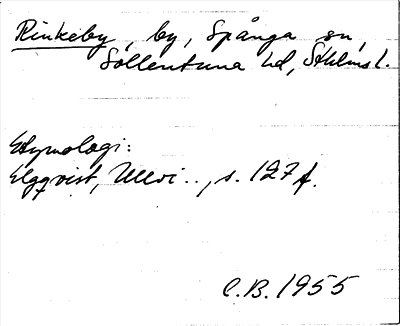 Rinkeby, by, Spånga sn,
Sollentuna hd, Sthlms l.
Etymologi:
Elgqvist, Ullvi.., s. 127 f.
C.B. 1955